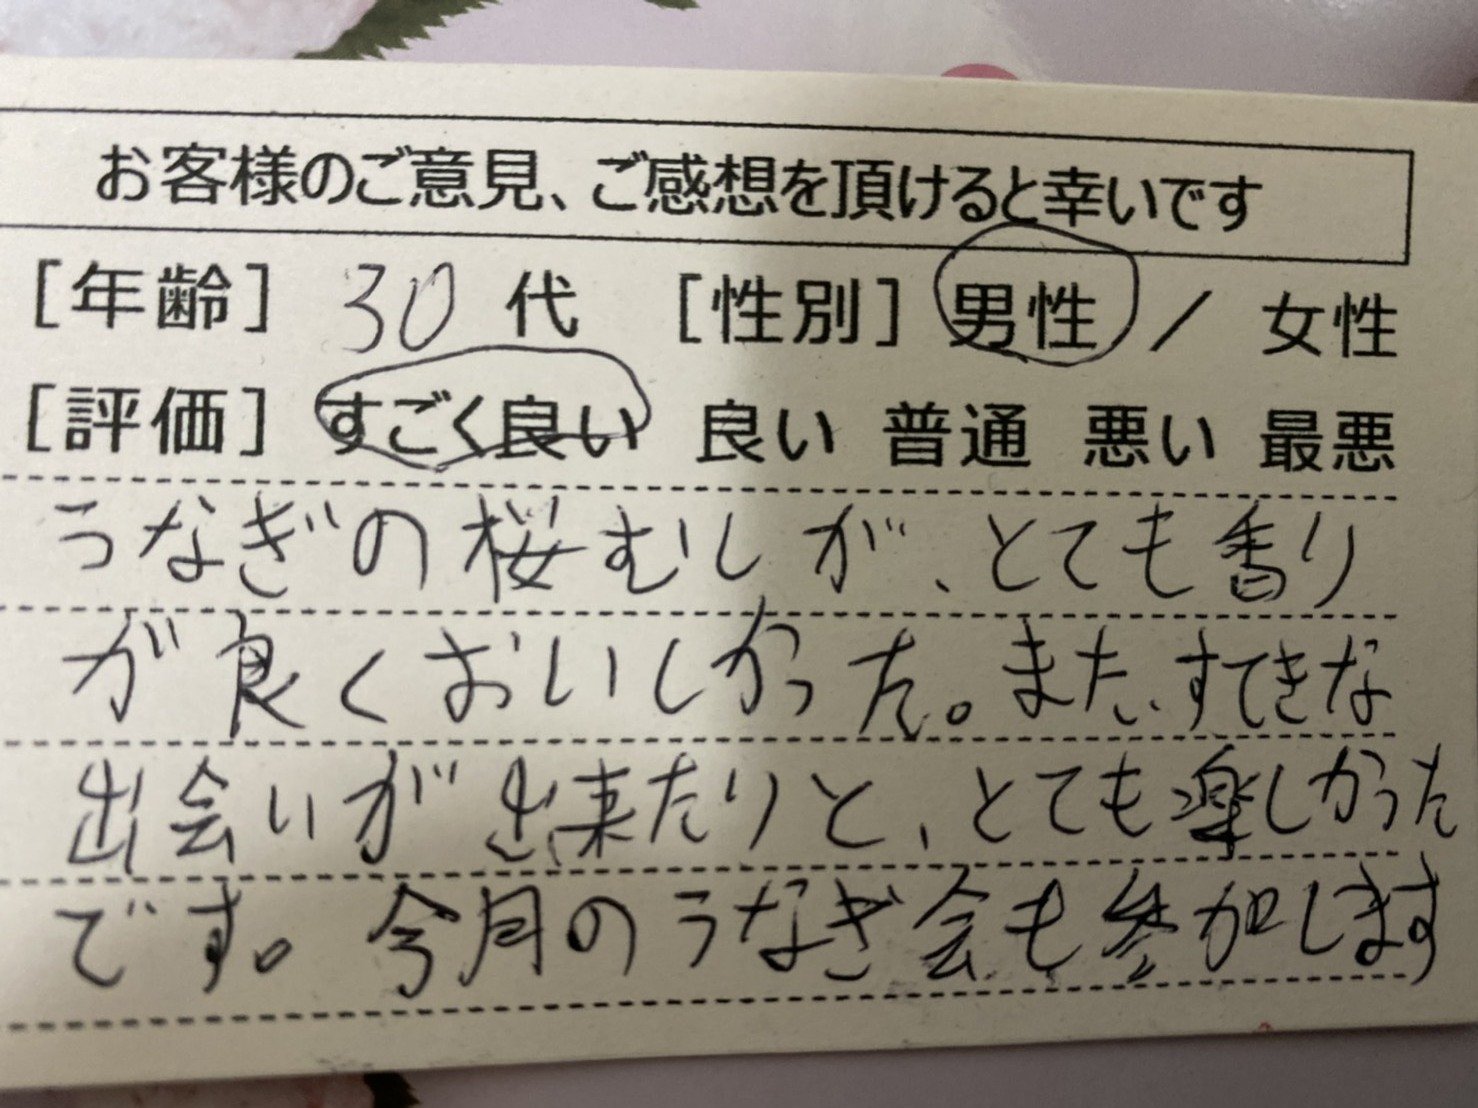 お客様のご意見、ご感想を頂けると幸いです
[年齢] 30 代 [性別] 男性 / 女性
[評価] すごく良い 良い 普通 悪い 最悪
うなぎの桜むしが、とても香り
が良くおいしかった。また、すてきな
出会いが出来たりと、とても楽しかった
です。今月のうなぎ会も参加します